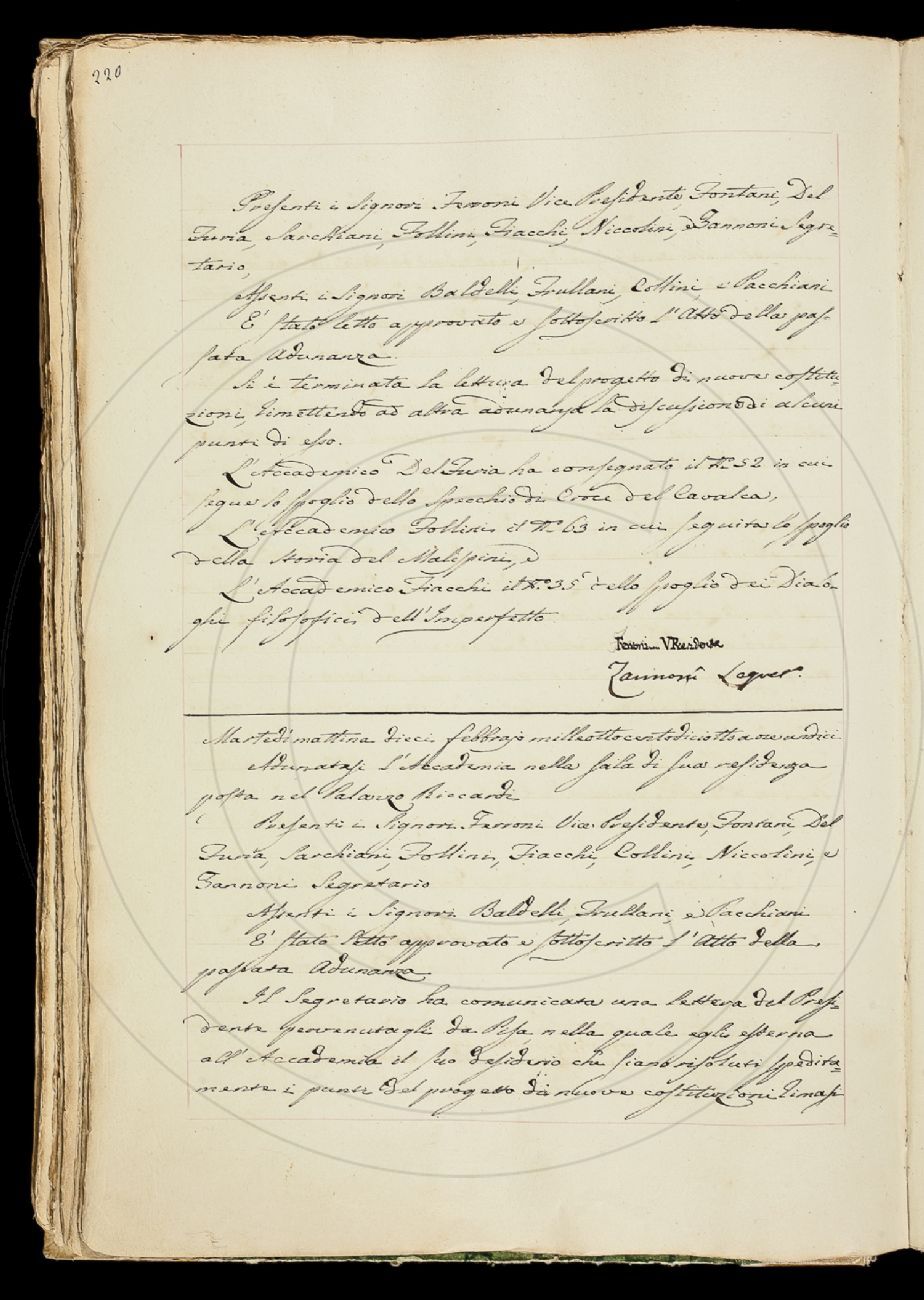 220
Presenti i Signori Ferroni Vice Presidente, Fontani, Del
Furia, Sarchiani, Follini, Fiacchi, Niccolini, e Zannoni Segre=
tario,
Assenti i Signori Baldelli, Frullani, Collini, e Pacchiani
E' stato letto approvato e sottoscritto l'Atto della pas-
sata Adunanza.
Si è terminata la lettura del progetto di nuove costitu=
zioni, rimettendo ad altra adunanza la discussione di alcuni
punti di esso.
L'Accademico Del Furia ha consegnato il N.º 52 in cui
segue lo spoglio dello Specchio di Croce del Cavalca,
L'Accademico Follini il N.º 63 in cui seguita lo spoglio
della Storia del Malispini, e
L'Accademico Fiacchi il N.º 35 dello spoglio dei Dialo-
ghi filosofici dell'Imperfetto
Ferroni V.Presidente
Zannoni Segret.º
Martedì mattina dieci febbrajo milleottocentodiciotto a ore undici
Adunatasi l'Accademia nella sala di sua residenza
posta nel Palazzo Riccardi
Presenti i Signori Ferroni Vice Presidente, Fontani, Del
Furia, Sarchiani, Follini, Fiacchi, Collini, Niccolini, e
Zannoni Segretario
Assenti i Signori Baldelli, Frullani, e Pacchiani
E' stato letto approvato e sottoscritto l'Atto della
passata Adunanza
Il Segretario ha comunicata una lettera del Presi=
dente pervenutagli da Pisa, nella quale egli esterna
all'Accademia il suo desiderio che siano risoluti spedita=
mente i punti del progetto di nuove costituzioni rimasi